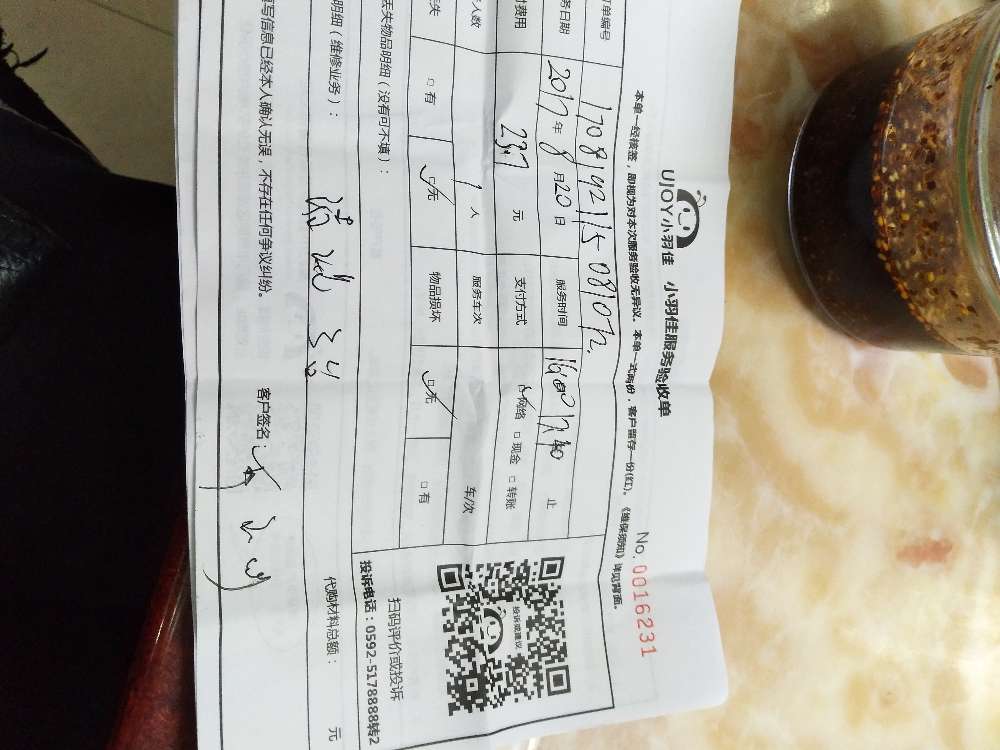 UJOY小羽佳 小羽佳服务验收单
No. 0016231
本单一经核签，即视为对本次服务验收无异议。本单一式两份，客户留存一份(红)。《维保须知》详见背面。
订单编号 170819211508107
务日期 2017年8月20日 服务时间 16:00 17:40 止
付费用 237 元 支付方式 网络 □现金 □转账
人数 1 人 服务车次 车/次
丢失 □有 □无 物品损坏 □无 □有
投诉或建议
扫码评价或投诉
投诉电话：0592-5178888转2
丢失物品明细（没有可不填）：
明细（维修业务）： 代购材料总额： 元
填写信息已经本人确认无误，不存在任何争议纠纷。 客户签名：